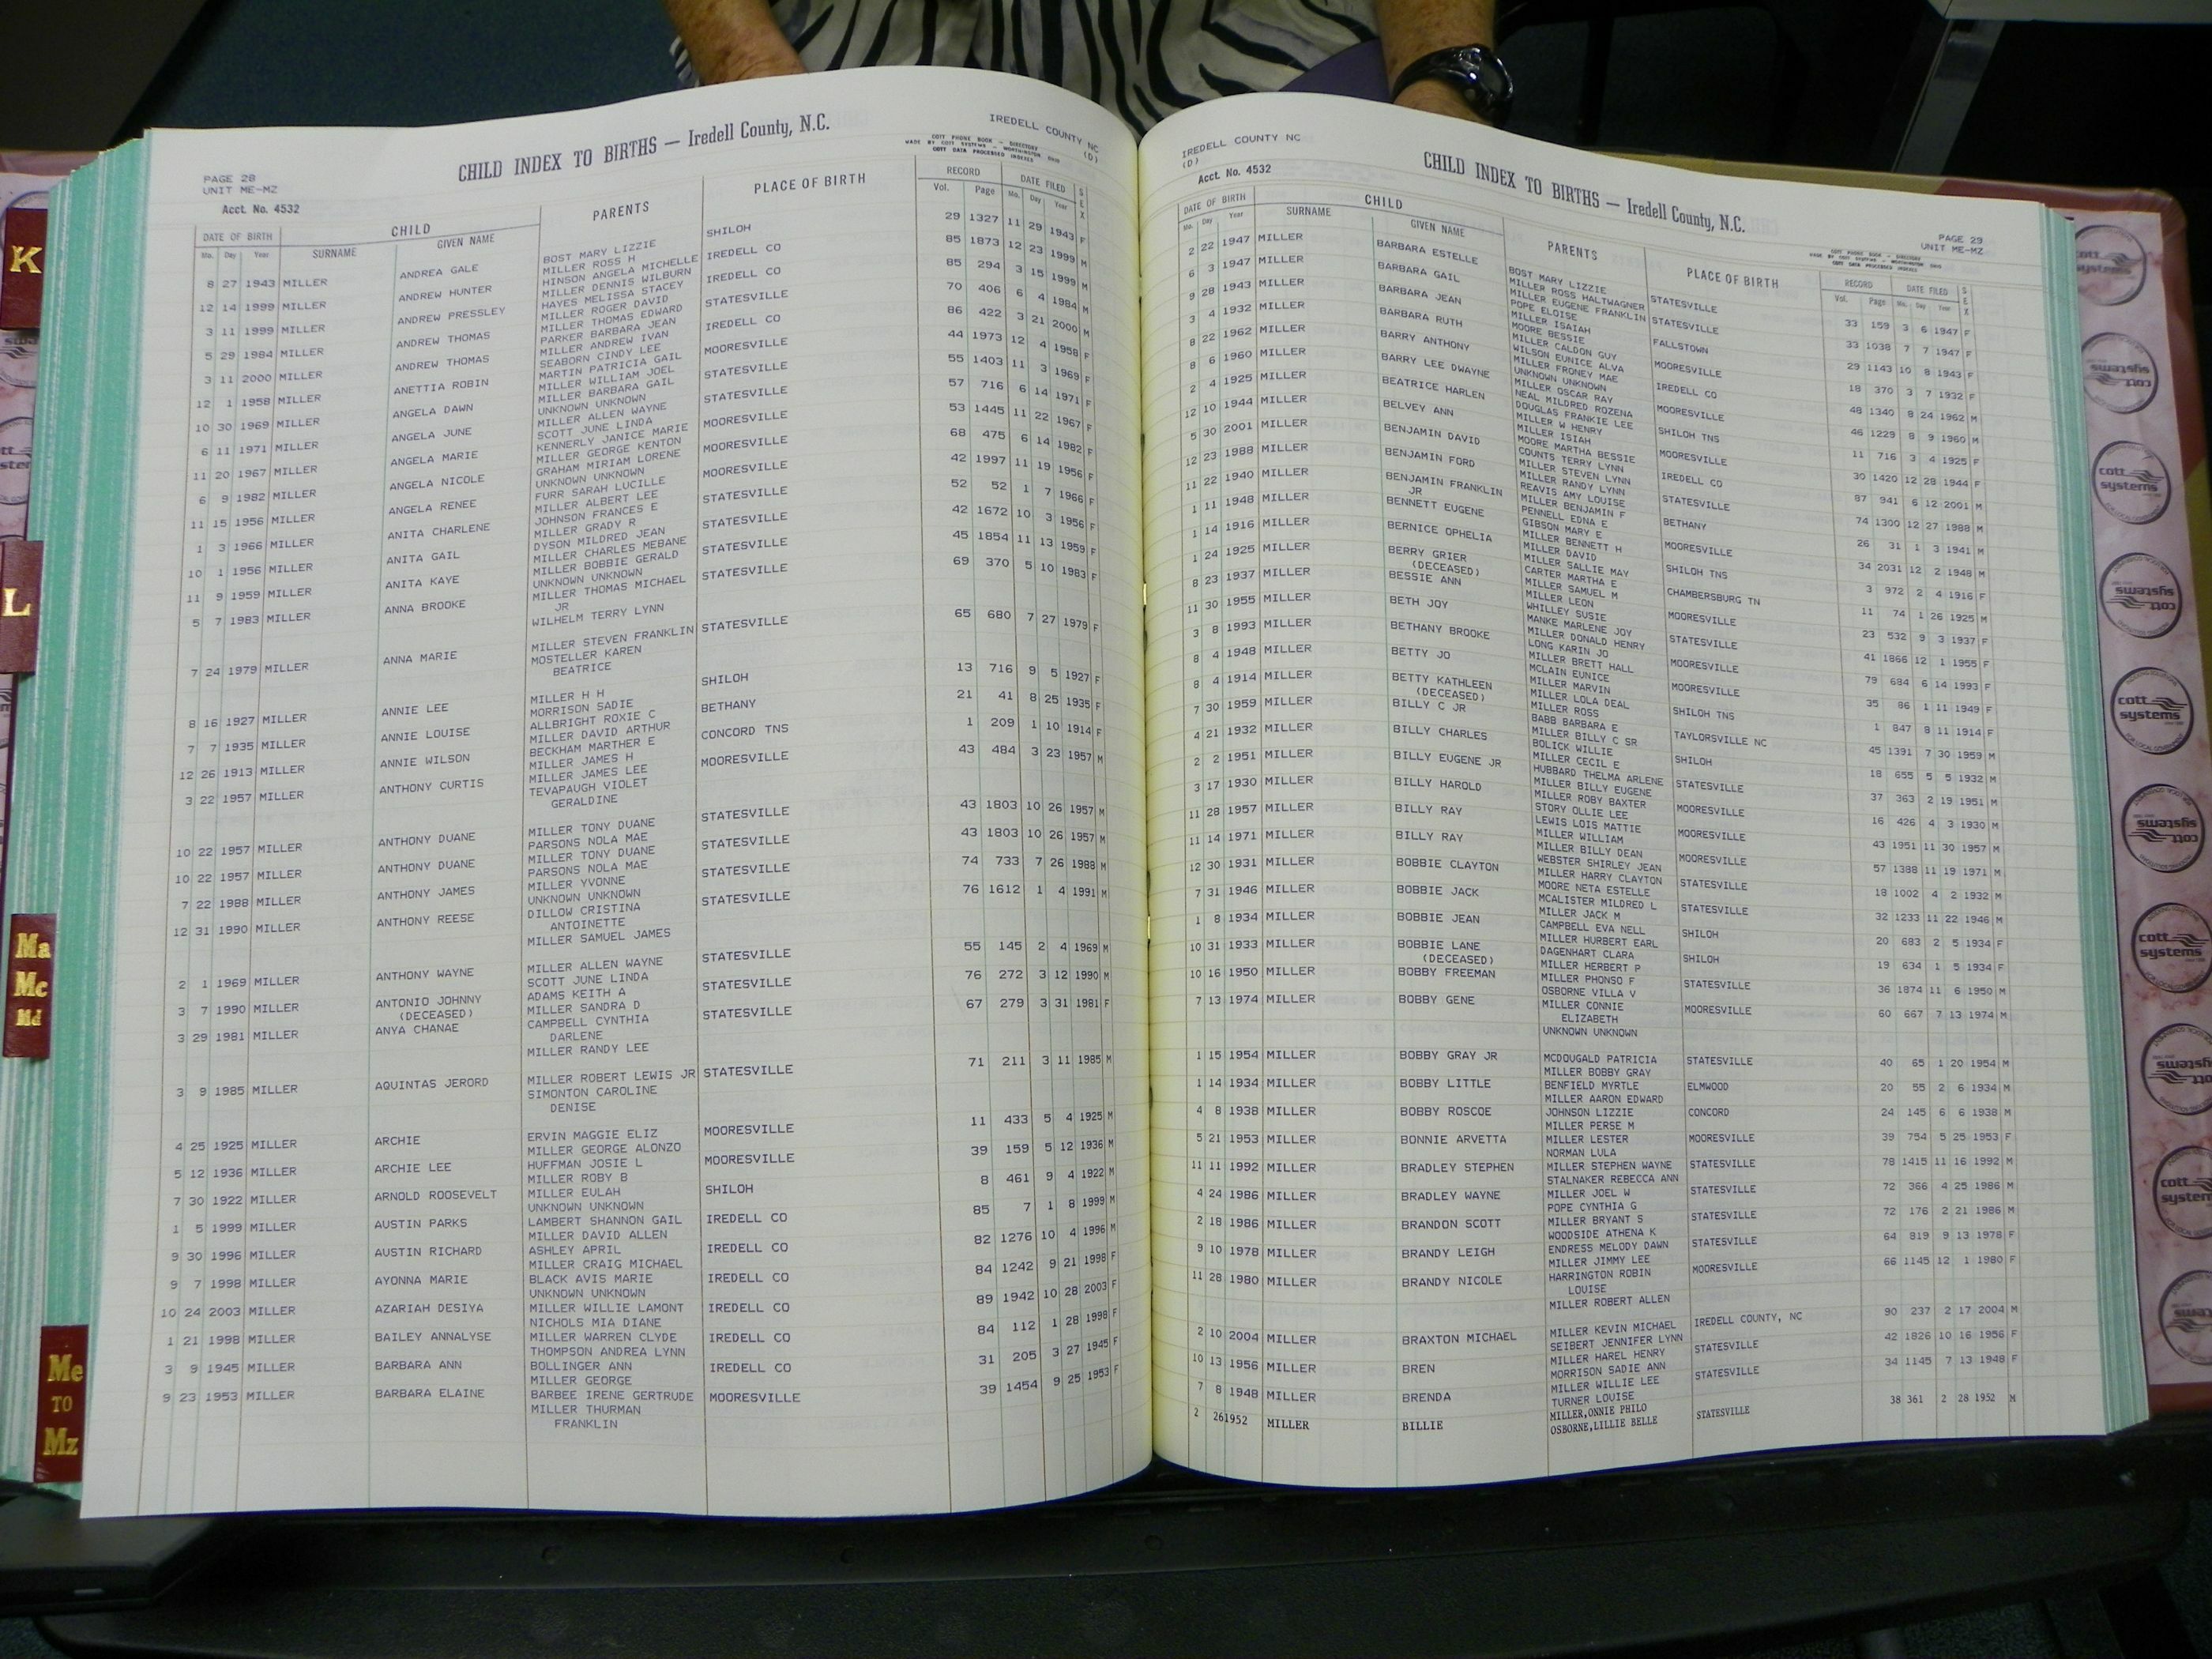 IREDELL COUNTY NC
(D)
CHILD INDEX TO BIRTHS — Iredell County, N.C.
COTT PHONE BOOK - DIRECTORY
MADE BY COTT SYSTEMS - WORTHINGTON OHIO
COTT DATA PROCESSED INDEXES
PAGE 28
UNIT ME-MZ
Acct. No. 4532
DATE OF BIRTH CHILD PARENTS PLACE OF BIRTH RECORD DATE FILED SEX
Mo. Day Year SURNAME GIVEN NAME Vol. Page Mo. Day Year
8 27 1943 MILLER ANDREA GALE BOST MARY LIZZIE SHILOH 29 1327 11 29 1943 F
MILLER ROSS H
12 14 1999 MILLER ANDREW HUNTER HINSON ANGELA MICHELLE IREDELL CO 85 1873 12 23 1999 M
MILLER DENNIS WILBURN
3 11 1999 MILLER ANDREW PRESSLEY HAYES MELISSA STACEY IREDELL CO 85 294 3 15 1999 M
MILLER ROGER DAVID
5 29 1984 MILLER ANDREW THOMAS MILLER THOMAS EDWARD STATESVILLE 70 406 6 4 1984 M
PARKER BARBARA JEAN
3 11 2000 MILLER ANDREW THOMAS MILLER ANDREW IVAN IREDELL CO 86 422 3 21 2000 M
SEABORN CINDY LEE
12 1 1958 MILLER ANETTIA ROBIN MARTIN PATRICIA GAIL MOORESVILLE 44 1973 12 4 1958 F
MILLER WILLIAM JOEL
10 30 1969 MILLER ANGELA DAWN MILLER BARBARA GAIL STATESVILLE 55 1403 11 3 1969 F
UNKNOWN UNKNOWN
6 11 1971 MILLER ANGELA JUNE MILLER ALLEN WAYNE STATESVILLE 57 716 6 14 1971 F
SCOTT JUNE LINDA
11 20 1967 MILLER ANGELA MARIE KENNERLY JANICE MARIE MOORESVILLE 53 1445 11 22 1967 F
MILLER GEORGE KENTON
6 9 1982 MILLER ANGELA NICOLE GRAHAM MIRIAM LORENE MOORESVILLE 68 475 6 14 1982 F
UNKNOWN UNKNOWN
11 15 1956 MILLER ANGELA RENEE FURR SARAH LUCILLE MOORESVILLE 42 1997 11 19 1956 F
MILLER ALBERT LEE
1 3 1966 MILLER ANITA CHARLENE JOHNSON FRANCES E STATESVILLE 52 52 1 7 1966 F
MILLER GRADY R
10 1 1956 MILLER ANITA GAIL DYSON MILDRED JEAN STATESVILLE 42 1672 10 3 1956 F
MILLER CHARLES MEBANE
11 9 1959 MILLER ANITA KAYE MILLER BOBBIE GERALD STATESVILLE 45 1854 11 13 1959 F
UNKNOWN UNKNOWN
5 7 1983 MILLER ANNA BROOKE MILLER THOMAS MICHAEL STATESVILLE 69 370 5 10 1983 F
JR
WILHELM TERRY LYNN
7 24 1979 MILLER ANNA MARIE MILLER STEVEN FRANKLIN STATESVILLE 65 680 7 27 1979 F
MOSTELLER KAREN
BEATRICE
8 16 1927 MILLER ANNIE LEE MILLER H H SHILOH 13 716 9 5 1927 F
MORRISON SADIE
7 7 1935 MILLER ANNIE LOUISE ALLBRIGHT ROXIE C BETHANY 21 41 8 25 1935 F
MILLER DAVID ARTHUR
12 26 1913 MILLER ANNIE WILSON BECKHAM MARTHER E CONCORD TNS 1 209 1 10 1914 F
MILLER JAMES H
3 22 1957 MILLER ANTHONY CURTIS MILLER JAMES LEE MOORESVILLE 43 484 3 23 1957 M
TEVAPAUGH VIOLET
GERALDINE
10 22 1957 MILLER ANTHONY DUANE MILLER TONY DUANE STATESVILLE 43 1803 10 26 1957 M
PARSONS NOLA MAE
10 22 1957 MILLER ANTHONY DUANE MILLER TONY DUANE STATESVILLE 43 1803 10 26 1957 M
PARSONS NOLA MAE
7 22 1988 MILLER ANTHONY JAMES MILLER YVONNE STATESVILLE 74 733 7 26 1988 M
UNKNOWN UNKNOWN
12 31 1990 MILLER ANTHONY REESE DILLOW CRISTINA STATESVILLE 76 1612 1 4 1991 M
ANTOINETTE
MILLER SAMUEL JAMES
2 1 1969 MILLER ANTHONY WAYNE MILLER ALLEN WAYNE STATESVILLE 55 145 2 4 1969 M
SCOTT JUNE LINDA
3 7 1990 MILLER ANTONIO JOHNNY ADAMS KEITH A STATESVILLE 76 272 3 12 1990 M
(DECEASED) MILLER SANDRA D
3 29 1981 MILLER ANYA CHANAE CAMPBELL CYNTHIA STATESVILLE 67 279 3 31 1981 F
DARLENE
MILLER RANDY LEE
3 9 1985 MILLER AQUINTAS JERORD MILLER ROBERT LEWIS JR STATESVILLE 71 211 3 11 1985 M
SIMONTON CAROLINE
DENISE
4 25 1925 MILLER ARCHIE ERVIN MAGGIE ELIZ MOORESVILLE 11 433 5 4 1925 M
MILLER GEORGE ALONZO
5 12 1936 MILLER ARCHIE LEE HUFFMAN JOSIE L MOORESVILLE 39 159 5 12 1936 M
MILLER ROBY B
7 30 1922 MILLER ARNOLD ROOSEVELT MILLER EULAH SHILOH 8 461 9 4 1922 M
UNKNOWN UNKNOWN
1 5 1999 MILLER AUSTIN PARKS LAMBERT SHANNON GAIL IREDELL CO 85 7 1 8 1999 M
MILLER DAVID ALLEN
9 30 1996 MILLER AUSTIN RICHARD ASHLEY APRIL IREDELL CO 82 1276 10 4 1996 M
MILLER CRAIG MICHAEL
9 7 1998 MILLER AYONNA MARIE BLACK AVIS MARIE IREDELL CO 84 1242 9 21 1998 F
UNKNOWN UNKNOWN
10 24 2003 MILLER AZARIAH DESIYA MILLER WILLIE LAMONT IREDELL CO 89 1942 10 28 2003 F
NICHOLS MIA DIANE
1 21 1998 MILLER BAILEY ANNALYSE MILLER WARREN CLYDE IREDELL CO 84 112 1 28 1998 F
THOMPSON ANDREA LYNN
3 9 1945 MILLER BARBARA ANN BOLLINGER ANN IREDELL CO 31 205 3 27 1945 F
MILLER GEORGE
9 23 1953 MILLER BARBARA ELAINE BARBEE IRENE GERTRUDE MOORESVILLE 39 1454 9 25 1953 F
MILLER THURMAN
FRANKLIN
IREDELL COUNTY NC
(D)
Acct. No. 4532
CHILD INDEX TO BIRTHS — Iredell County, N.C.
PAGE 29
UNIT ME-MZ
COTT PHONE BOOK - DIRECTORY
MADE BY COTT SYSTEMS - WORTHINGTON OHIO
COTT DATA PROCESSED INDEXES
DATE OF BIRTH CHILD PARENTS PLACE OF BIRTH RECORD DATE FILED SEX
Mo. Day Year SURNAME GIVEN NAME Vol. Page Mo. Day Year
2 22 1947 MILLER BARBARA ESTELLE BOST MARY LIZZIE STATESVILLE 33 159 3 6 1947 F
MILLER ROSS HALTWAGNER
6 3 1947 MILLER BARBARA GAIL MILLER EUGENE FRANKLIN STATESVILLE 33 1038 7 7 1947 F
POPE ELOISE
9 28 1943 MILLER BARBARA JEAN MILLER ISAIAH FALLSTOWN 29 1143 10 8 1943 F
MOORE BESSIE
3 4 1932 MILLER BARBARA RUTH MILLER CALDON GUY MOORESVILLE 18 370 3 7 1932 F
WILSON EUNICE ALVA
8 22 1962 MILLER BARRY ANTHONY MILLER FRONEY MAE IREDELL CO 48 1340 8 24 1962 M
UNKNOWN UNKNOWN
8 6 1960 MILLER BARRY LEE DWAYNE MILLER OSCAR RAY MOORESVILLE 46 1229 8 9 1960 M
NEAL MILDRED ROZENA
2 4 1925 MILLER BEATRICE HARLEN DOUGLAS FRANKIE LEE SHILOH TNS 11 716 3 4 1925 F
MILLER W HENRY
12 10 1944 MILLER BELVEY ANN MILLER ISIAH MOORESVILLE 30 1420 12 28 1944 F
MOORE MARTHA BESSIE
5 30 2001 MILLER BENJAMIN DAVID COUNTS TERRY LYNN IREDELL CO 87 941 6 12 2001 M
MILLER STEVEN LYNN
12 23 1988 MILLER BENJAMIN FORD MILLER RANDY LYNN STATESVILLE 74 1300 12 27 1988 M
REAVIS AMY LOUISE
11 22 1940 MILLER BENJAMIN FRANKLIN MILLER BENJAMIN F BETHANY 26 31 1 3 1941 M
JR PENNELL EDNA E
1 11 1948 MILLER BENNETT EUGENE GIBSON MARY E MOORESVILLE 34 2031 12 2 1948 M
MILLER BENNETT H
1 14 1916 MILLER BERNICE OPHELIA MILLER DAVID SHILOH TNS 3 972 2 4 1916 F
MILLER SALLIE MAY
1 24 1925 MILLER BERRY GRIER CARTER MARTHA E CHAMBERSBURG TN 11 74 1 26 1925 M
(DECEASED) MILLER SAMUEL M
8 23 1937 MILLER BESSIE ANN MILLER LEON MOORESVILLE 23 532 9 3 1937 F
WHILLEY SUSIE
11 30 1955 MILLER BETH JOY MANKE MARLENE JOY STATESVILLE 41 1866 12 1 1955 F
MILLER DONALD HENRY
3 8 1993 MILLER BETHANY BROOKE LONG KARIN JO MOORESVILLE 79 684 6 14 1993 F
MILLER BRETT HALL
8 4 1948 MILLER BETTY JO MCLAIN EUNICE MOORESVILLE 35 86 1 11 1949 F
MILLER MARVIN
8 4 1914 MILLER BETTY KATHLEEN MILLER LOLA DEAL SHILOH TNS 1 847 8 11 1914 F
(DECEASED) MILLER ROSS
7 30 1959 MILLER BILLY C JR BABB BARBARA E TAYLORSVILLE NC 45 1391 7 30 1959 M
MILLER BILLY C SR
4 21 1932 MILLER BILLY CHARLES BOLICK WILLIE SHILOH 18 655 5 5 1932 M
MILLER CECIL E
2 2 1951 MILLER BILLY EUGENE JR HUBBARD THELMA ARLENE STATESVILLE 37 363 2 19 1951 M
MILLER BILLY EUGENE
3 17 1930 MILLER BILLY HAROLD MILLER ROBY BAXTER MOORESVILLE 16 426 4 3 1930 M
STORY OLLIE LEE
11 28 1957 MILLER BILLY RAY LEWIS LOIS MATTIE MOORESVILLE 43 1951 11 30 1957 M
MILLER WILLIAM
11 14 1971 MILLER BILLY RAY MILLER BILLY DEAN MOORESVILLE 57 1388 11 19 1971 M
WEBSTER SHIRLEY JEAN
12 30 1931 MILLER BOBBIE CLAYTON MILLER HARRY CLAYTON STATESVILLE 18 1002 4 2 1932 M
MOORE NETA ESTELLE
7 31 1946 MILLER BOBBIE JACK MCALISTER MILDRED L STATESVILLE 32 1233 11 22 1946 M
MILLER JACK M
1 8 1934 MILLER BOBBIE JEAN CAMPBELL EVA NELL SHILOH 20 683 2 5 1934 F
MILLER HURBERT EARL
10 31 1933 MILLER BOBBIE LANE DAGENHART CLARA SHILOH 19 634 1 5 1934 F
(DECEASED) MILLER HERBERT P
10 16 1950 MILLER BOBBY FREEMAN MILLER PHONSO F STATESVILLE 36 1874 11 6 1950 M
OSBORNE VILLA V
7 13 1974 MILLER BOBBY GENE MILLER CONNIE MOORESVILLE 60 667 7 13 1974 M
ELIZABETH
UNKNOWN UNKNOWN
1 15 1954 MILLER BOBBY GRAY JR MCDOUGALD PATRICIA STATESVILLE 40 65 1 20 1954 M
MILLER BOBBY GRAY
1 14 1934 MILLER BOBBY LITTLE BENFIELD MYRTLE ELMWOOD 20 55 2 6 1934 M
MILLER AARON EDWARD
4 8 1938 MILLER BOBBY ROSCOE JOHNSON LIZZIE CONCORD 24 145 6 6 1938 M
MILLER PERSE M
5 21 1953 MILLER BONNIE ARVETTA MILLER LESTER MOORESVILLE 39 754 5 25 1953 F
NORMAN LULA
11 11 1992 MILLER BRADLEY STEPHEN MILLER STEPHEN WAYNE STATESVILLE 78 1415 11 16 1992 M
STALNAKER REBECCA ANN
4 24 1986 MILLER BRADLEY WAYNE MILLER JOEL W STATESVILLE 72 366 4 25 1986 M
POPE CYNTHIA G
2 18 1986 MILLER BRANDON SCOTT MILLER BRYANT S STATESVILLE 72 176 2 21 1986 M
WOODSIDE ATHENA K
9 10 1978 MILLER BRANDY LEIGH ENDRESS MELODY DAWN STATESVILLE 64 819 9 13 1978 F
MILLER JIMMY LEE
11 28 1980 MILLER BRANDY NICOLE HARRINGTON ROBIN MOORESVILLE 66 1145 12 1 1980 F
LOUISE
MILLER ROBERT ALLEN
2 10 2004 MILLER BRAXTON MICHAEL MILLER KEVIN MICHAEL IREDELL COUNTY, NC 90 237 2 17 2004 M
SEIBERT JENNIFER LYNN
10 13 1956 MILLER BREN MILLER HAREL HENRY STATESVILLE 42 1826 10 16 1956 F
MORRISON SADIE ANN
7 8 1948 MILLER BRENDA MILLER WILLIE LEE STATESVILLE 34 1145 7 13 1948 F
TURNER LOUISE
2 261952 MILLER BILLIE MILLER,ONNIE PHILO STATESVILLE 38 361 2 28 1952 M
OSBORNE,LILLIE BELLE
K
L
Ma
Mc
Md
Me
TO
Mz
cott
systems